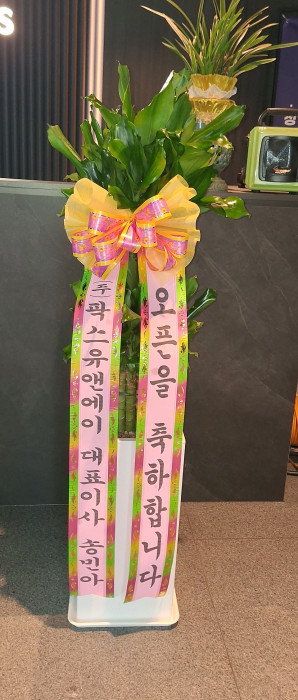 (주)팍스유앤에이 대표이사 송민아
오픈을 축하합니다